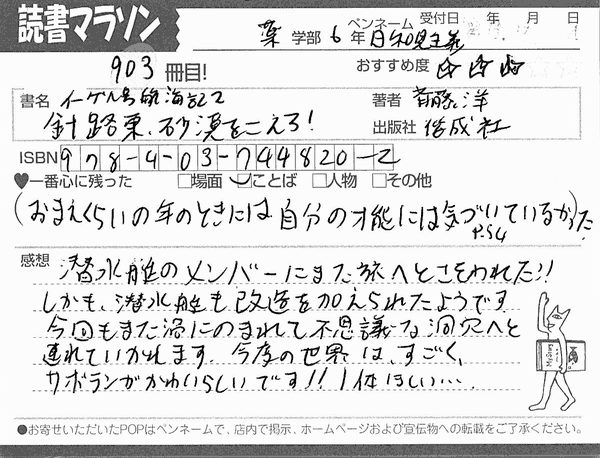 読書マラソン
薬 学部 6 年 ペンネーム 日和見主義 受付日 年 月 日
903 冊目! おすすめ度 ☆☆☆
書名 イーゲル号航海記2 著者 斉藤洋
針路東、砂漠をこえろ! 出版社 偕成社
ISBN 978-4-03-744820-2
♥一番心に残った □場面 □ことば □人物 □その他
(おまえくらいの年のときには自分の才能には気づいているかった)
P.54
感想 潜水艇のメンバーにまた旅へとさそわれた!!
しかも、潜水艇も改造を加えられたようです
今回もまた渦にのまれて不思議な洞穴へと
連れていかれます。今度の世界は、すごく、
サボランがかわいらしいです!! 1体ほしい…。
●お寄せいただいたPOPはペンネームで、店内で掲示、ホームページおよび宣伝物への転載をご了承ください。